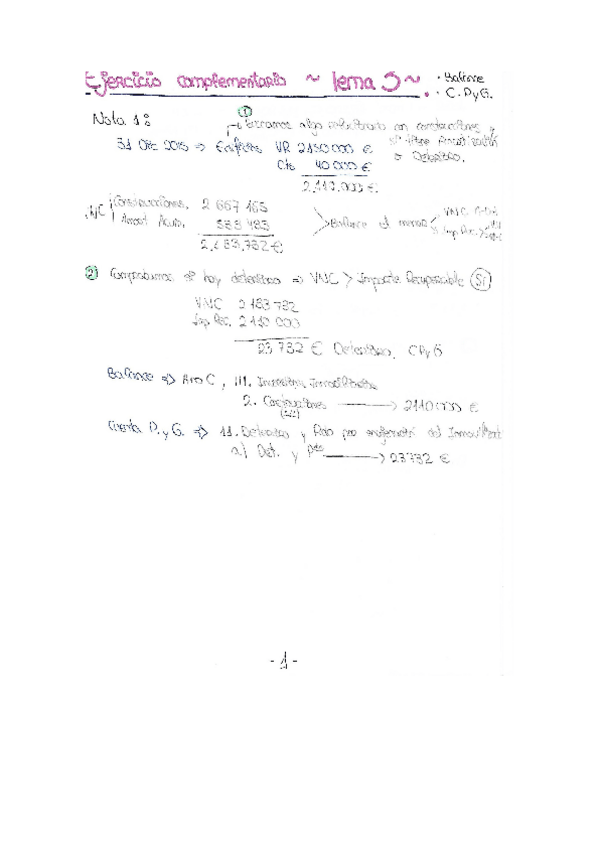 Ejercicio complementario ~ Tema 5 ~. · Balance
· C. PyG.
Nota 1:
①
Buscamos algo relacionado con construcciones y
si tiene Amortización
o Deterioro.
31 Dic 2015 ⇒ Edificios VR 2150 000 €
Cts 40 000 €
2.110.000 €
VNC Construcciones, 2 667 165
Amort Acum.
2.183.732 €
Balance el menor VNC
Imp. Rec.
② Comprobamos si hay deterioro ⇒ VNC > Importe Recuperable Sí
VNC 2 183 732
Imp. Rec. 2 110 000
23 732 € Deterioro. CPyG
Balance ⇒ Ano C, III. Inversiones Inmobiliarias
2. Construcciones → 2110 000 €
Cuenta P. y G. ⇒ 11. Deterioro y Rdo por enajenación del Inmovilizado
a) Det. y Pdas → 23 732 €
- 1 -